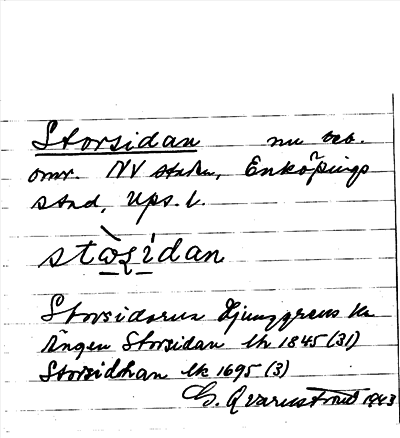 Storsidan nu beb.
omr. NV staden, Enköpings
stad, Ups. l.
stòşídan
Storsidorna Ljunggrens ka
Ängen Storsidan lk 1845 (31)
Storsidhan lk 1695 (3)
G. Qvarnström 1943